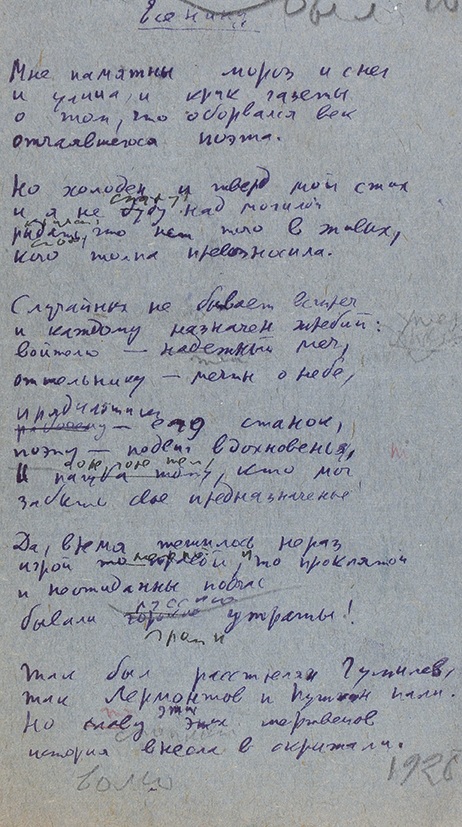 Есенину
Мне памятны мороз и снег
и улица, и крик газеты
о том, что оборвался век
отчаявшегося поэта.
Но холоден и тверд мой стих
стану
и я не буду над могилой
рыдать, что нет того в живых,
кого толпа превозносила.
Случайных не бывает встреч
и каждому назначен жребий:
войтелю — надежный меч,
отшельнику — мечты о небе,
рабочему — его станок,
поэту — подвиг вдохновенья,
И пагуба тому, кто мог
забыть свое предназначенье
Да, время тешилось не раз
игрой то, что проклятой
и неожиданны подчас
бывали утраты!
Так был расстрелян Гумилев,
так Лермонтов и Пушкин пали.
Но славу этих мертвецов
история внесла в скрижали.
1926